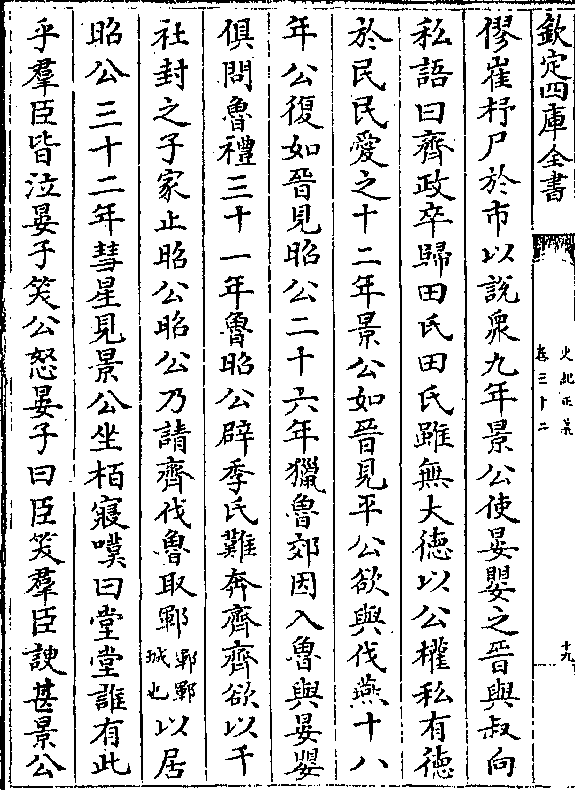 欽定四庫全書
史記正義
卷三十二
十九
僇崔杼尸於市以說衆九年景公使晏嬰之晉與叔向
私語曰齊政卒歸田氏田氏雖無大德以公權私有德
於民民愛之十二年景公如晉見平公欲與伐燕十八
年公復如晉見昭公二十六年獵魯郊因入魯與晏嬰
俱問魯禮三十一年魯昭公辟季氏難奔齊齊欲以千
社封之子家止昭公昭公乃請齊伐魯取鄆鄆鄆城也以居
昭公三十二年彗星見景公坐栢寢嘆曰堂堂誰有此
乎羣臣皆泣晏子笑公怒晏子曰臣笑羣臣諛甚景公